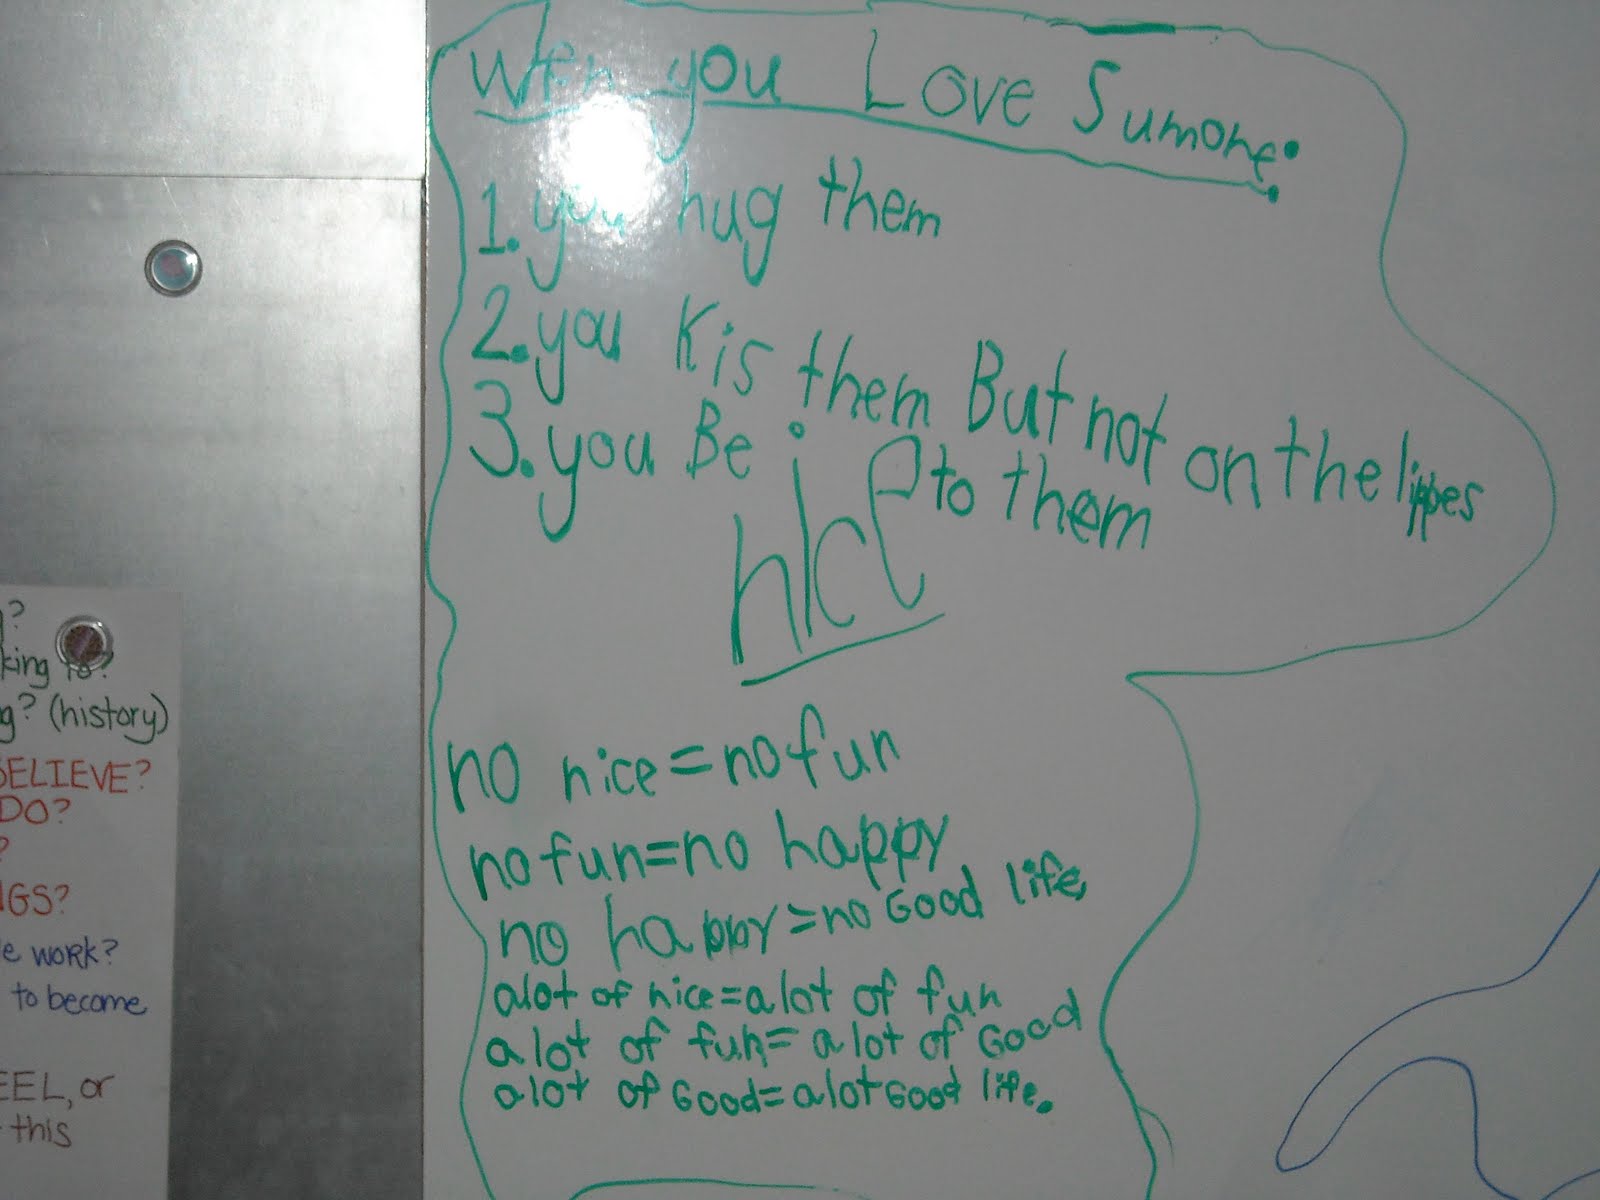 When you Love Sumone:
1. you hug them
2. you Kis them But not on the lippes
3. you Be nice to them
no nice = no fun
no fun = no happy
no happy = no Good life
alot of nice = alot of fun
alot of fun = alot of Good
alot of Good = alot Good life.
?
king to?
g? (history)
BELIEVE?
DO?
?
NGS?
e WORK?
to become
EEL, or
this